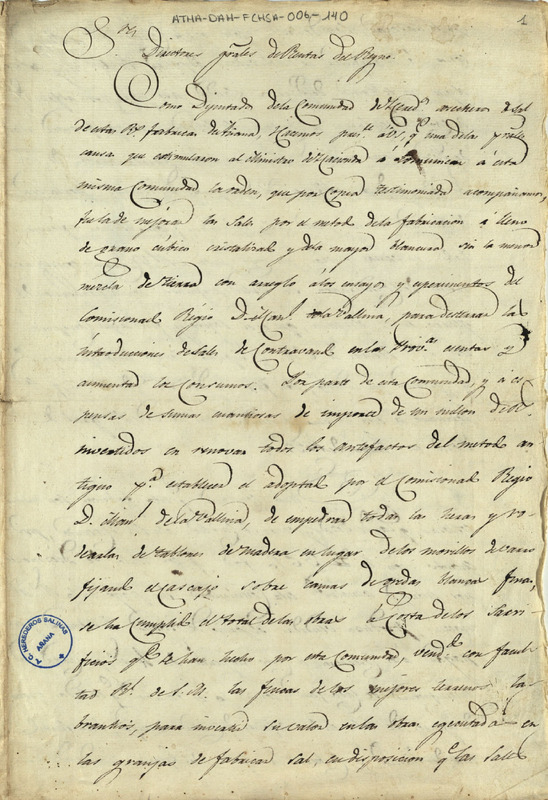 ATHA-DAH-FCHSA-006-140
1
S.res Directores grales de Rentas del Reyno.
Como Diputados de la Comunidad de Hered.s de sal
de estas R.s fabricas de Añana, hacemos pres.te á VS, q.e una de las
causas que estimularon al Ministro de Hacienda á comunicar á esta
misma Comunidad la orden, que por copia testimoniada acompañamos,
fue la de mejorar las sales por el metodo de la fabricacion á lleno
de grano cúbico cristalizado y de la mayor blancura sin la menor
mezcla de tierra con arreglo á los ensayos y esperimentos del
Comisionado Régio D. Man.l de la Ballina, para desterrar las
introducciones de sales de Contravando en las Prov.as esentas y
aumentar los Consumos. Por parte de esta Comunidad, y á es
pensas de sumas cuantiosas de de un millon de r.s
invertidos en renovar todos los artefactos del metodo an
tiguo p.a establecer el adoptado por el Comisionado Regio
D. Man.l de la Ballina, de empedrar todas las heras y ro
dearlas de tablones de madera en lugar de los morillos de varro
fijando el cascajo sobre camas de greda blanca fina,
se ha cumplido el total de las obras á costa de los sacri
ficios q.e se han hecho por esta Comunidad, vend.do con facul
tad R.l de S.M. las fincas de los mejores terrenos la
brantios, para invertir su valor en las obras egecutadas en
las granjas de fabricar sal en disposicion q.e las sales
A.C. HEREDEROS SALINAS
AÑANA